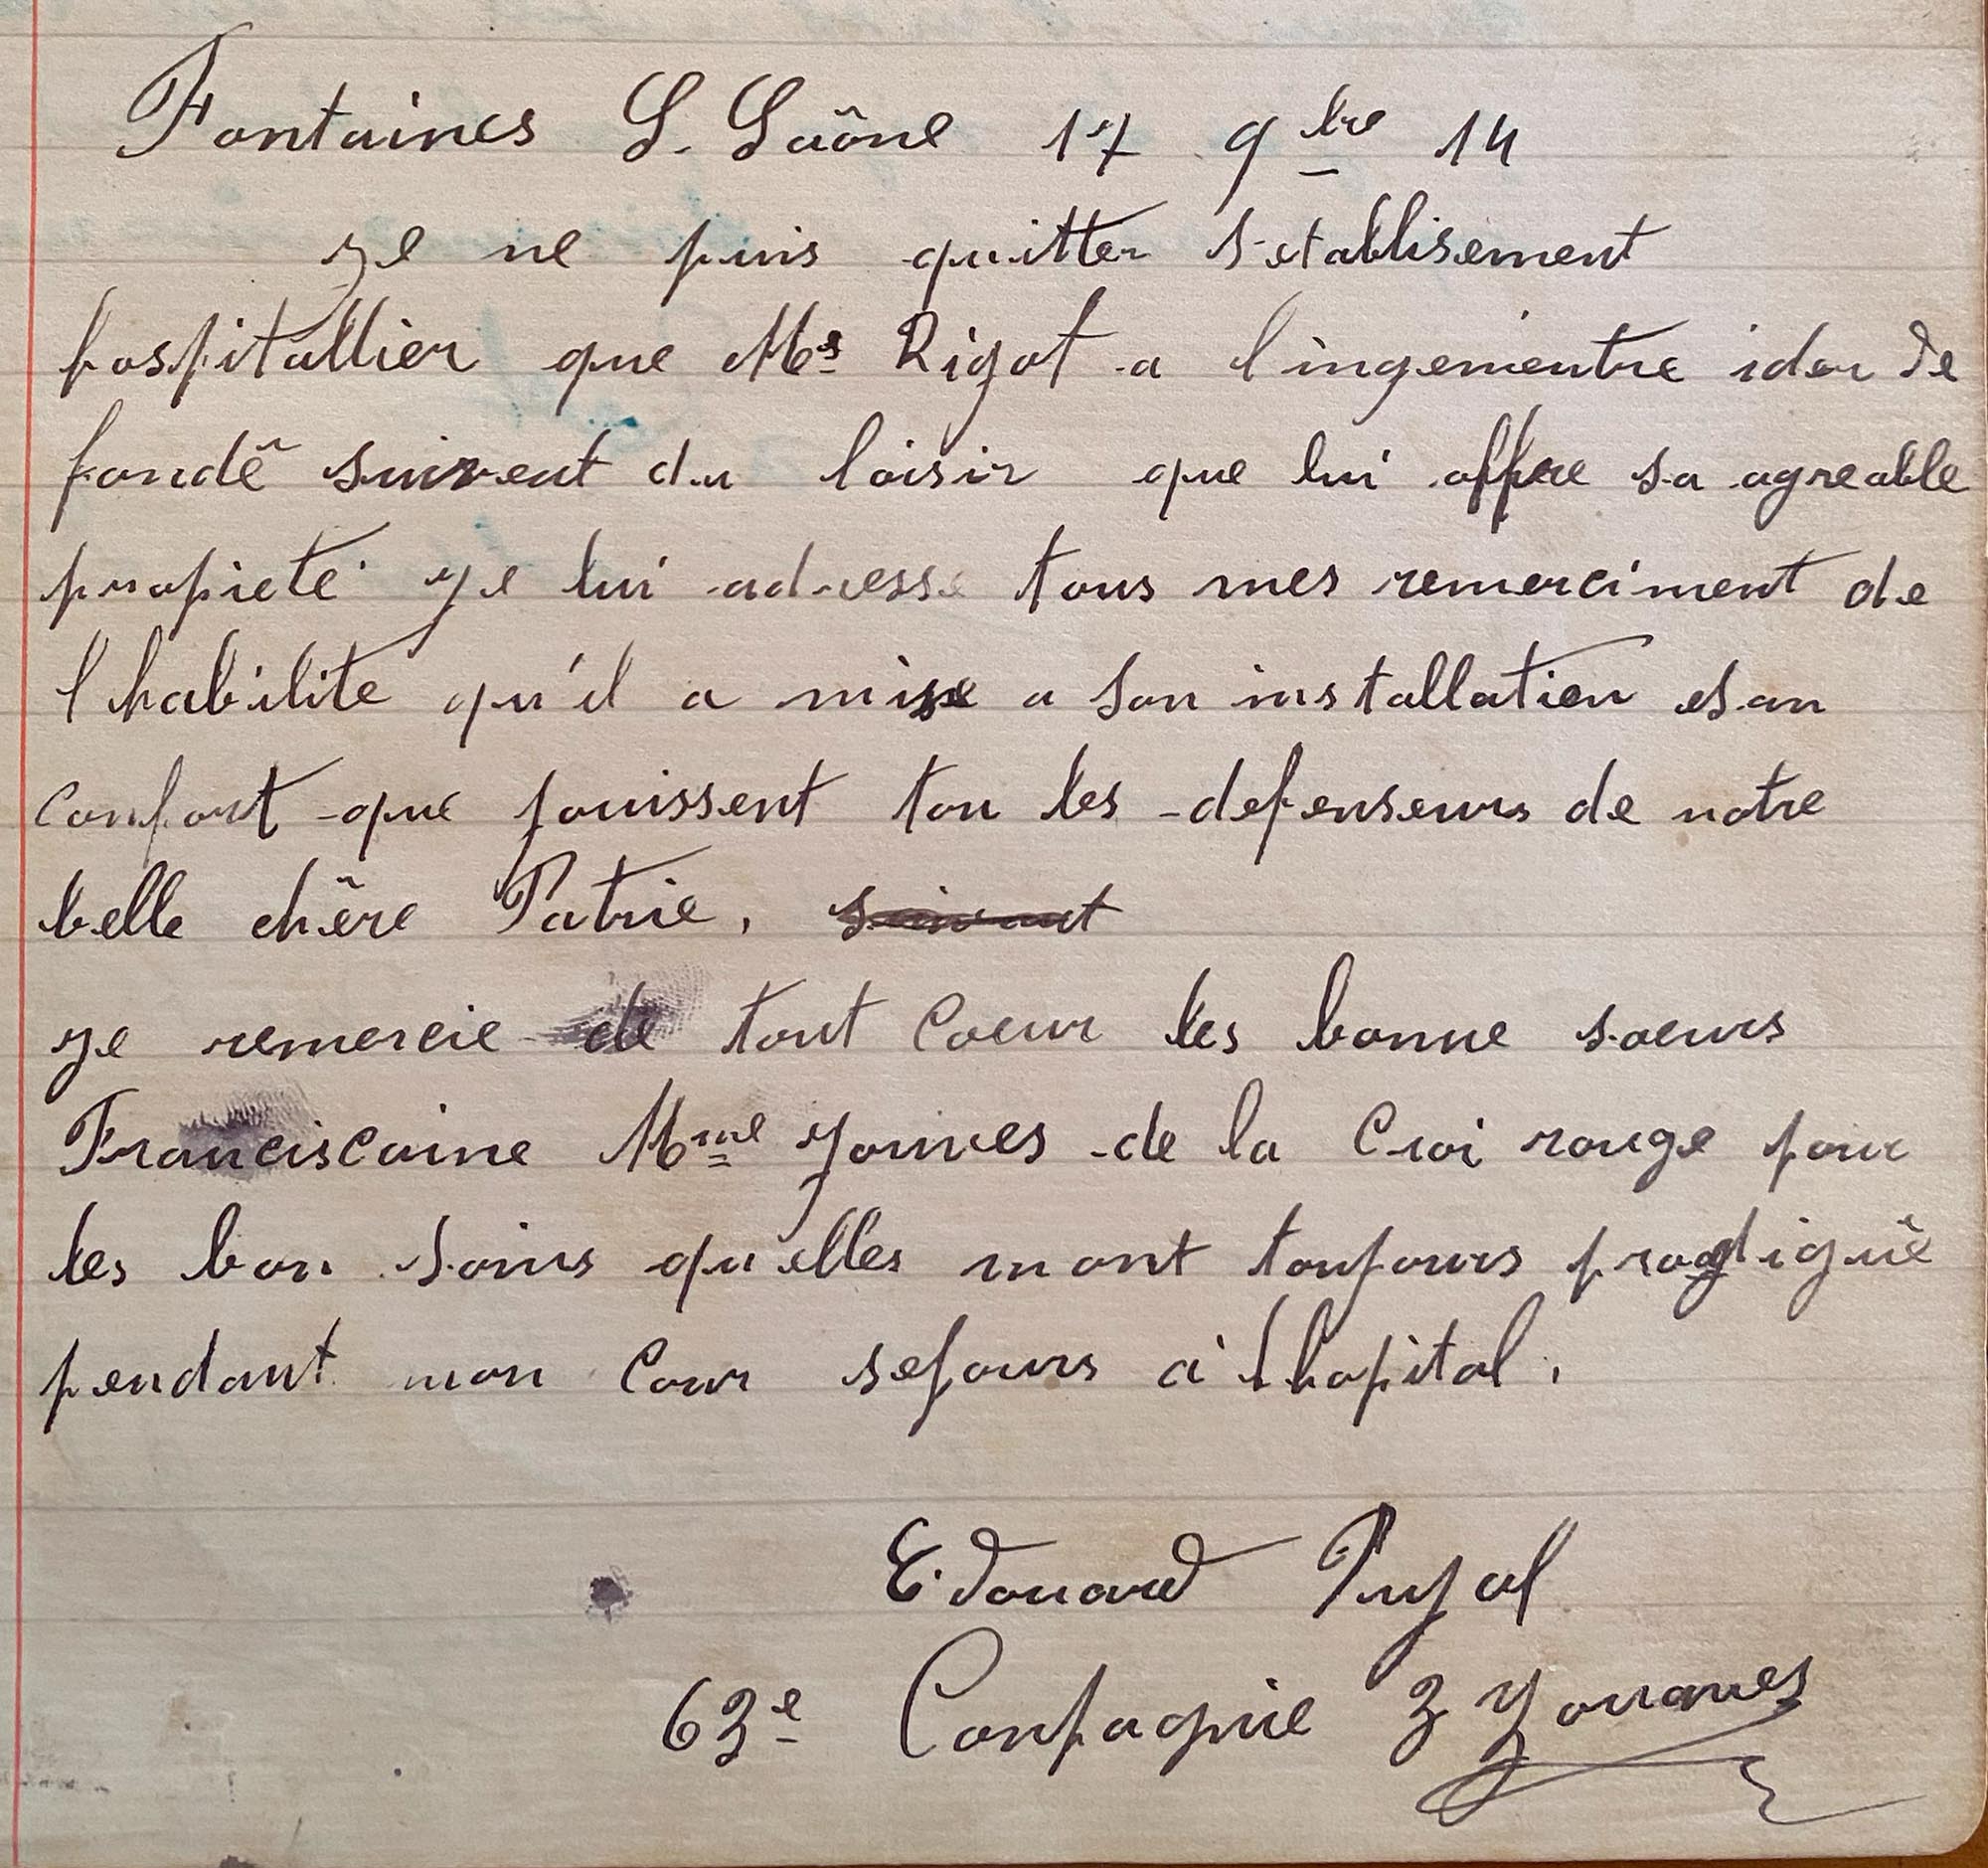 Fontaines S. Saône 17 9bre 14
Je ne puis quitter s etablisement
hospitallier que Mr Rigot a l'ingenientre ider de
fondé suivent du loisir que lui offre sa agreable
propieté je lui adresse tous mes remerciment de
l habilité qu'il a mise a son installation es an
confort que jouissent tou les defenseurs de notre
belle chère Patrie.
je remercie de tout coeur les bonne soeurs
Franciscaine Mme Jonves de la Croi rouge pour
les bon soins qu elles mont toujours prodigué
pendant mon cour sejours a l hopital.
Edouard Pujol
63e Conpagnie 3 Zouaves